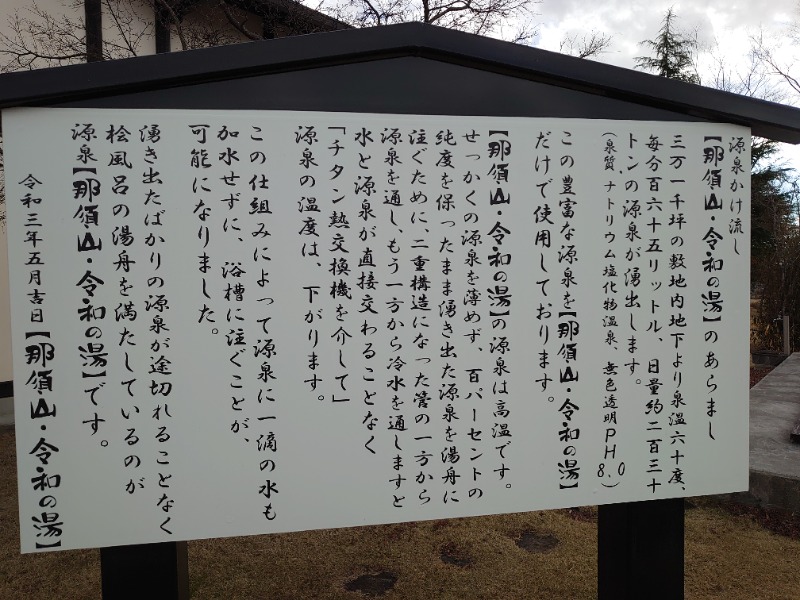 源泉かけ流し
【那須山・令和の湯】のあらまし
三万一千坪の敷地内地下より泉温六十度、
毎分百六十五リットル、日量約二百三十
トンの源泉が湧出します。
(泉質、ナトリウム塩化物温泉、無色透明PH8.0)
この豊富な源泉を【那須山・令和の湯】
だけで使用しております。
【那須山・令和の湯】の源泉は高温です。
せっかくの源泉を薄めず、百パーセントの
純度を保ったまま湧き出た源泉を湯舟に
注ぐために、二重構造になった管の一方から
源泉を通し、もう一方から冷水を通しますと
水と源泉が直接交わることなく
「チタン熱交換機を介して」
源泉の温度は、下がります。
この仕組みによって源泉に一滴の水も
加水せずに、浴槽に注ぐことが、
可能になりました。
湧き出たばかりの源泉が途切れることなく
桧風呂の湯舟を満たしているのが
源泉【那須山・令和の湯】です。
令和三年五月吉日【那須山・令和の湯】